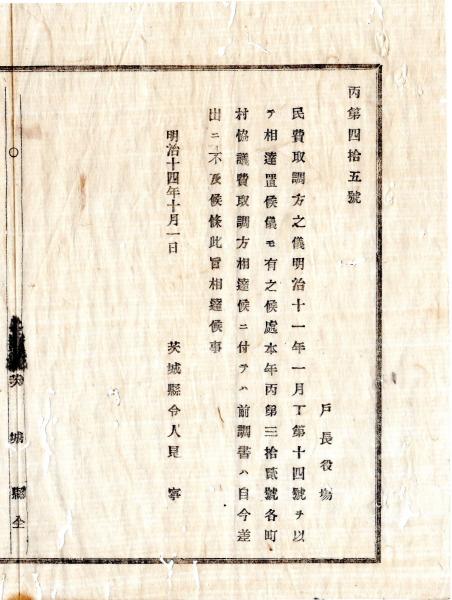 丙第四拾五號
戸長役場
民費取調方之儀明治十一年一月丁第十四號ヲ以
テ相達置候儀モ有之候處本年丙第三拾貳號各町
村協議費取調方相達候ニ付テハ前調書ハ自今差
出ニ不及候條此旨相達候事
明治十四年十月一日
茨城縣令人見寧
茨城縣